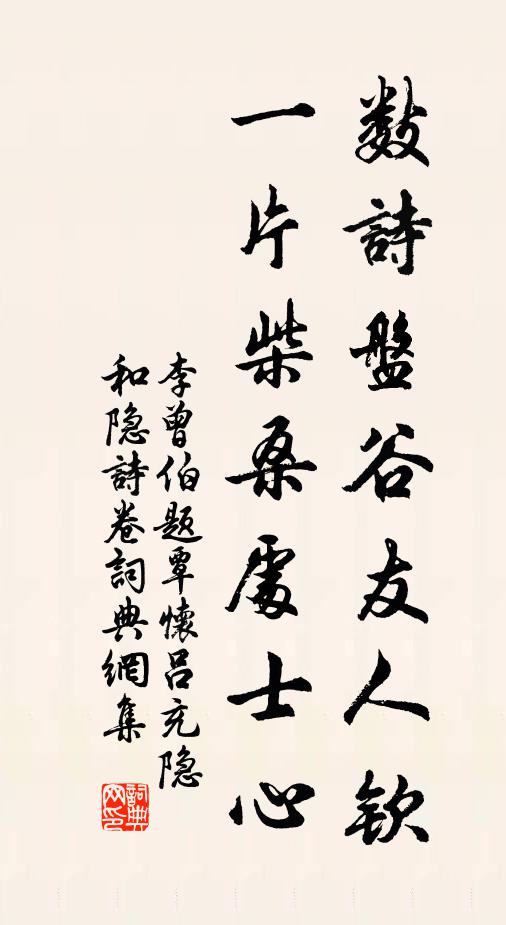 数詩盤谷友人欽
一片柴桑處士心
李曾伯题覃懷吕充隐
和隐詩卷詞典網集
詞典网印